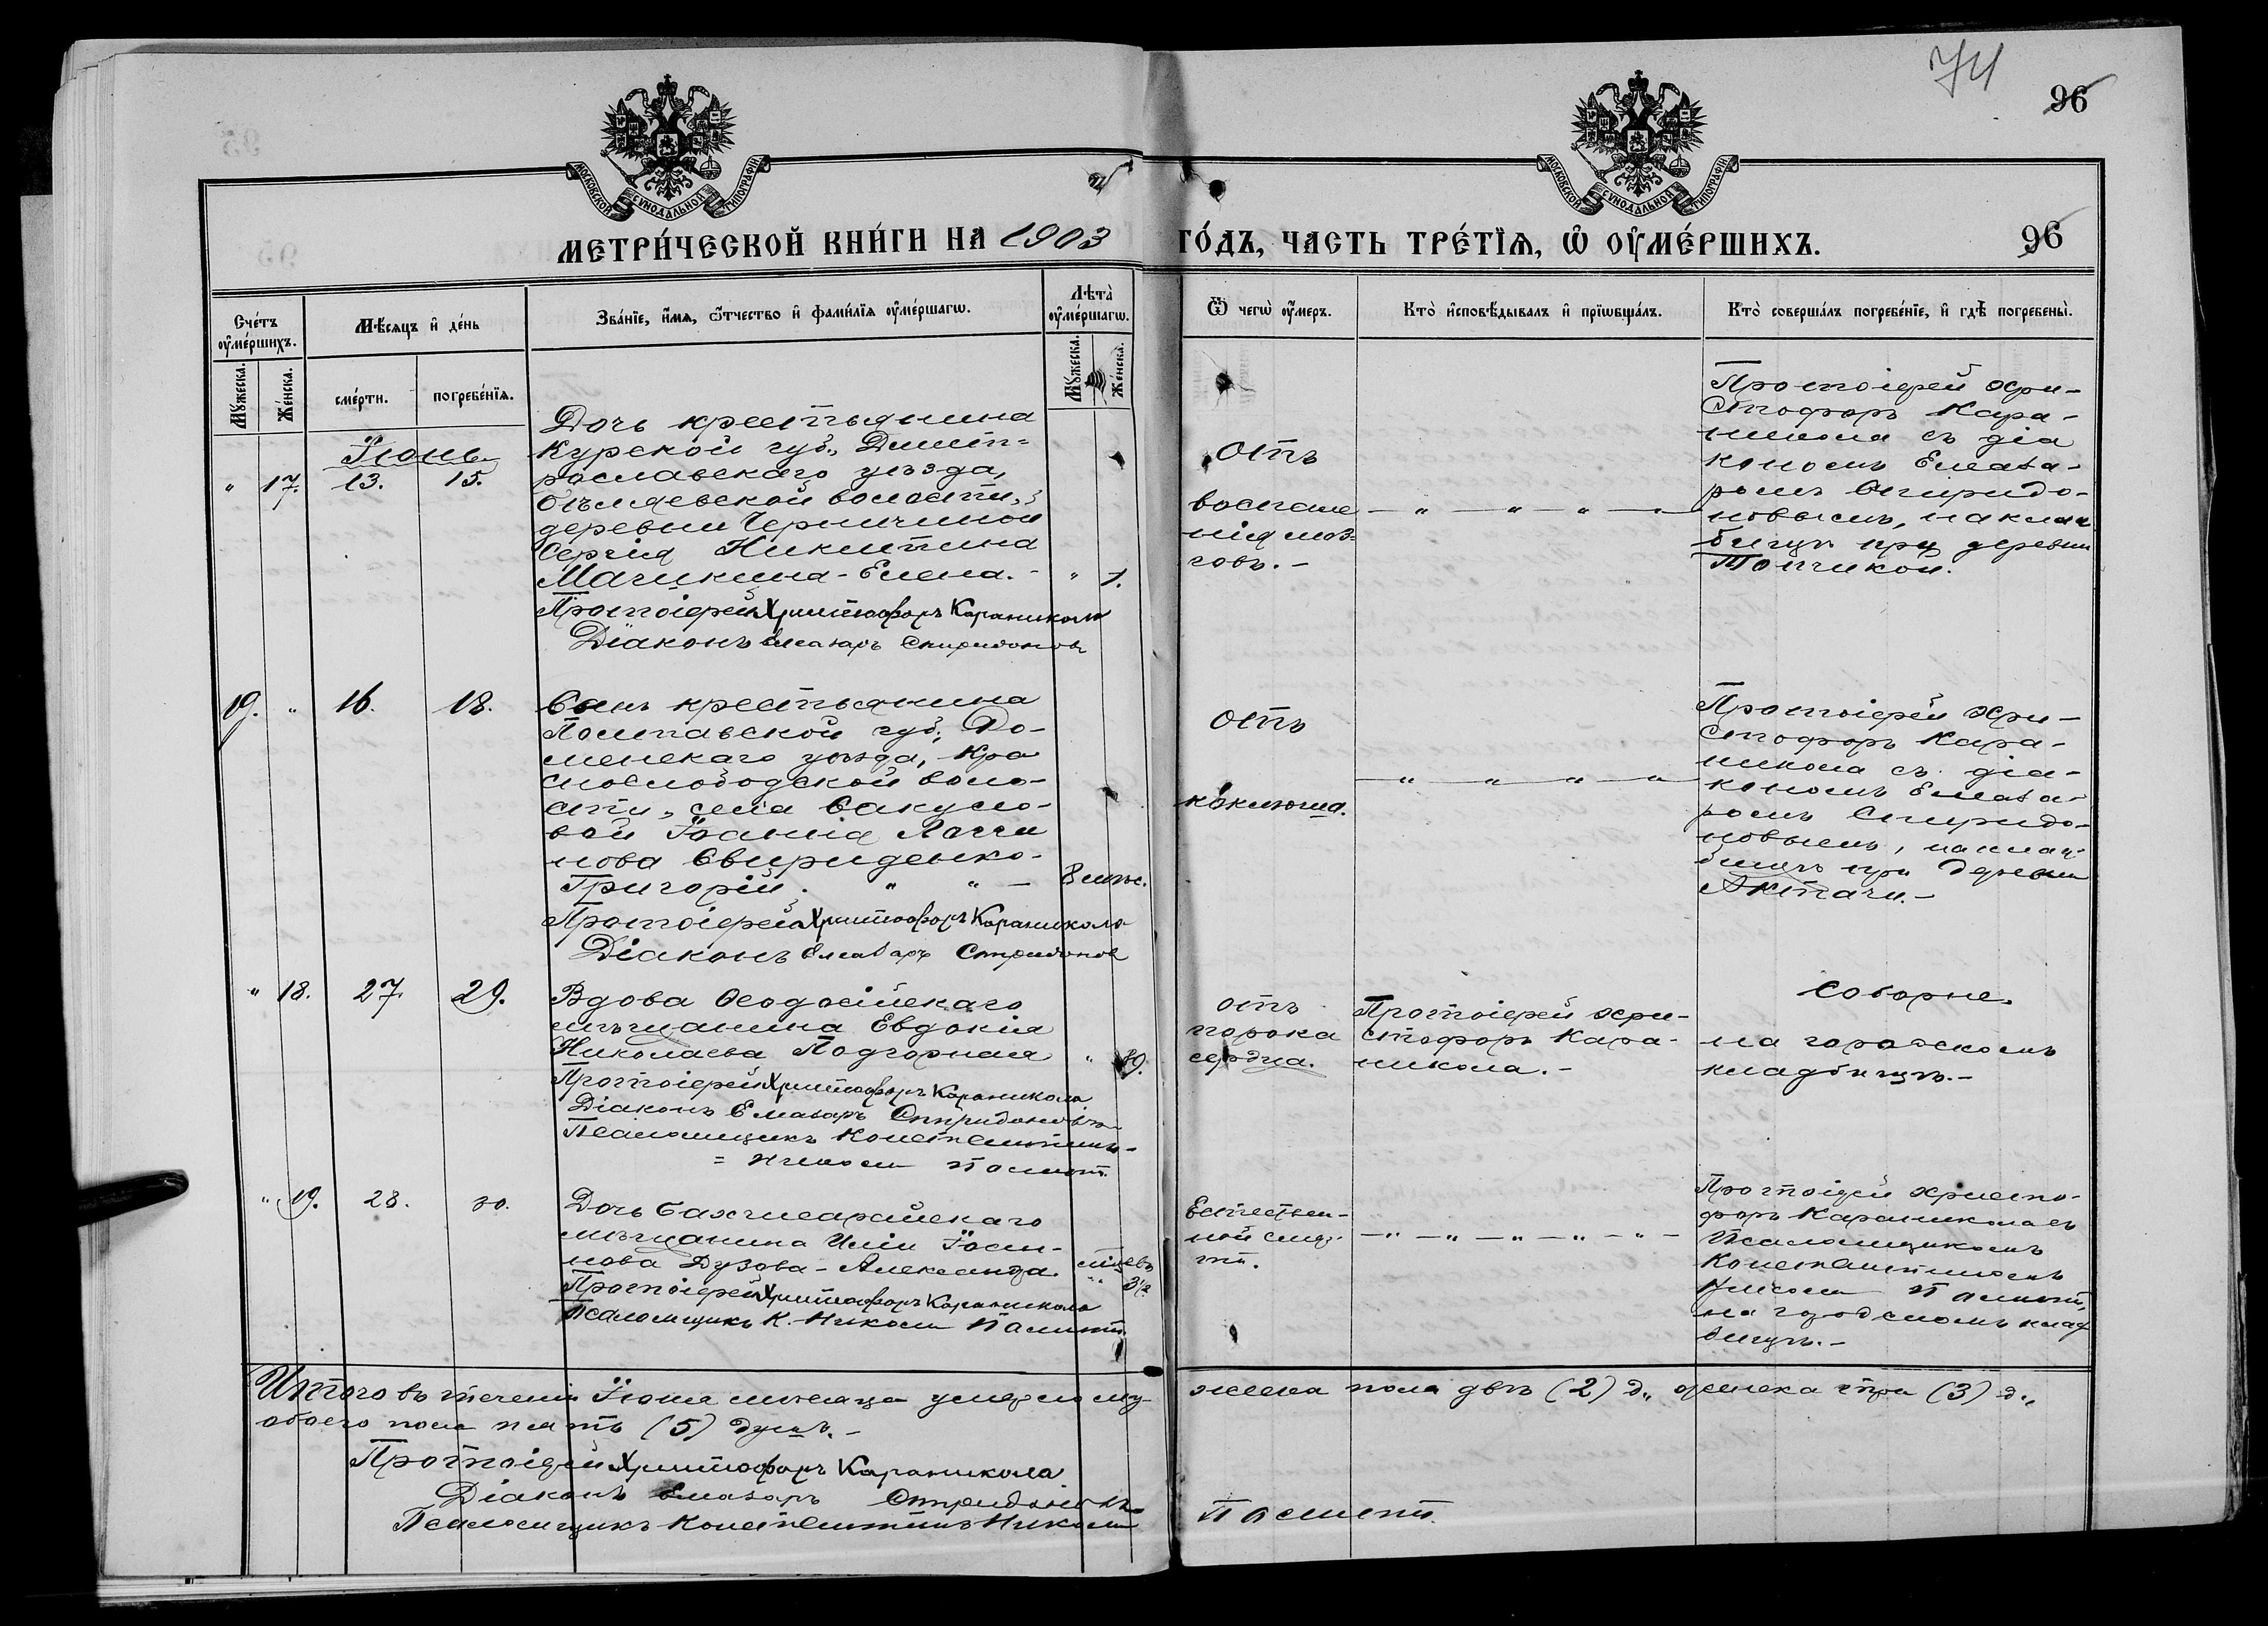 74
96
МОСКОВСКОЙ СУНОДАЛЬНОЙ ТИПОГРАФІИ
МОСКОВСКОЙ СУНОДАЛЬНОЙ ТИПОГРАФІИ
МЕТРИ́ЧЕСКОЙ КНИ́ГИ НА 1903
ГО́ДЪ, ЧАСТЬ ТРЕ́ТІѦ, Ѡ ОУМЕ́РШИХЪ.
96
Сче́тъ оуме́ршихъ.
Мѣсяцъ и де́нь
Зва́ніе, и́мя, ѻ́тчество и фами́лія оуме́ршагѡ.
Лѣта̀ оуме́ршагѡ.
Му́жеска.
Же́нска.
сме́рти.
погребе́нія.
Му́жеска.
Же́нска.
Ѿ чегѡ̀ оу́меръ.
Кто̀ исповѣ́дывалъ и пріѡбща́лъ.
Кто̀ соверша́лъ погребе́ніе, и гдѣ̀ погребены̀.
Іюнь
" 17. 13. 15.
Дочь крестьянина
Курской губ., Дмит-
рославскаго уѣзда,
волости,
деревни
Сергія Никитина
- Елена. - " 1.
Протоіерей Христофоръ Караникола
Діаконъ Елеазаръ Спиридоновъ
Отъ
воспале
нія моз-
говъ. -
— " — " — " — " —
Протоіерей Хри-
стофоръ Кара-
никола съ діа
кономъ Елеаза-
ромъ Спиридо-
новымъ, на клад
бищѣ при деревни
Топчикой.
19. " 16. 18.
Сынъ крестьянина
Полтавской губ., Ро-
менскаго уѣзда, Кра
снослободской воло-
сти, села
Іоанна
нова Свириденко-
Григорій. " " — 8 мѣс.
Протоіерей Христофоръ Караникола
Діаконъ Елеазаръ Спиридоновъ
Отъ
коклюша.
— " — " — " — " —
Протоіерей Хри-
стофоръ Кара-
никола съ діа-
кономъ Елеаза-
ромъ Спиридо-
новымъ, на клад-
бищѣ при деревни
Актачи. -
" 18. 27. 29.
Вдова Ѳеодосійскаго
мѣщанина Евдокія
Николаева Подгорная "
Протоіерей Христофоръ Караникола
Діаконъ Елеазаръ Спиридоновъ
Псаломщикъ Константинъ
=
отъ
порока
сердца.
Протоіерей Хри-
стофоръ Кара-
никола. -
Соборне.
на городскомъ
кладбищѣ. -
" 19. 28. 30.
Дочь Бахчисарайскаго
мѣщанина Иліи
Александра.
Протоіерей Христофоръ Караникола
Псаломщикъ К.
Естествен-
ной смер-
ти.
— " — " — " — " — " —
Протоіерей Христо-
форъ Караникола съ
Псаломщикомъ
Константиномъ
на городскомъ клад
бищѣ. -
Итого въ теченіи Іюня мѣсяца умерло му-
жеска пола двѣ (2) д., женска три (3) д.,
обоего пола пять (5) душъ. -
Протоіерей Христофоръ Караникола
Діаконъ Елеазаръ Спиридоновъ
Псаломщикъ Константинъ